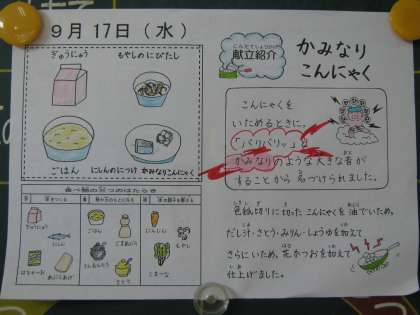 9月 17日(水)
ぎゅうにゅう
もやしのにびたし
ごはん
にしんのつけ
かみなりこんにゃく
食べ物の三つのはたらき
ぎゅうにゅう
にしん
ごはん
ごまあぶら
さとう
にんじん
こまつな
もやし
献立紹介
かみなり
こんにゃく
こんにゃくを
いためるときに、
「バリバリッ」と
かみなりのような大きな音が
することから名づけられました。
色紙切りに切ったこんにゃくを油でいため、
だし汁・さとう・みりん・しょうゆを加えて
さらにいため、花かつおを加えて
仕上げました。